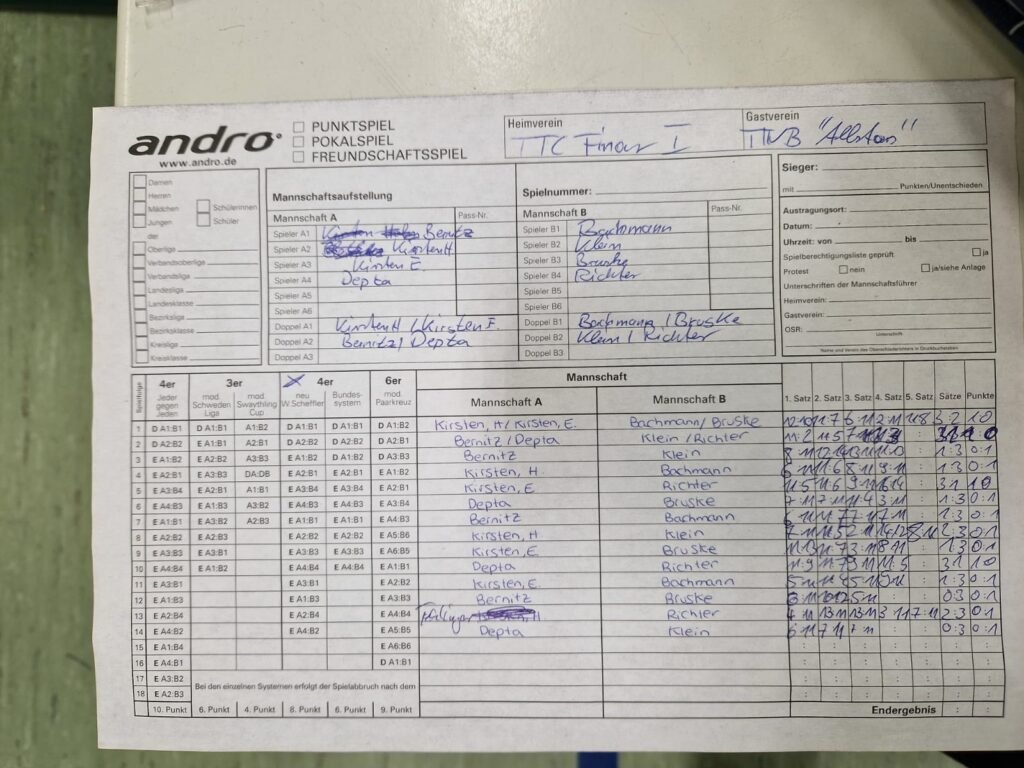 andro
www.andro.de
PUNKTSPIEL
POKALSPIEL
FREUNDSCHAFTSSPIEL
Heimverein
TTC Finow I
Gastverein
TTVB "Allstars"
Damen
Herren
Mädchen Schülerinnen
Jungen Schüler
der
Oberliga
Verbandsoberliga
Verbandsliga
Landesliga
Landesklasse
Bezirksliga
Bezirksklasse
Kreisliga
Kreisklasse
Mannschaftsaufstellung
Mannschaft A Pass-Nr.
Spieler A1 Bernitz
Spieler A2 Kirsten H
Spieler A3 Kirsten E.
Spieler A4 Depta
Spieler A5
Spieler A6
Doppel A1 Kirsten H / Kirsten E.
Doppel A2 Bernitz / Depta
Doppel A3
Spielnummer:
Mannschaft B Pass-Nr.
Spieler B1 Bachmann
Spieler B2 Klein
Spieler B3 Bruske
Spieler B4 Richter
Spieler B5
Spieler B6
Doppel B1 Bachmann / Bruske
Doppel B2 Klein / Richter
Doppel B3
Sieger:
mit Punkten/Unentschieden
Austragungsort:
Datum:
Uhrzeit: von bis
Spielberechtigungsliste geprüft ja
Protest nein ja/siehe Anlage
Unterschriften der Mannschaftsführer
Heimverein:
Gastverein:
OSR:
Unterschrift
Name und Verein des Oberschiedsrichters in Druckbuchstaben
Spielfolge 4er 3er 4er 6er Mannschaft
Jeder gegen Jeden mod. Schweden Liga mod. Swaythling Cup neu W.Scheffler Bundessystem mod. Paarkreuz Mannschaft A Mannschaft B 1. Satz 2. Satz 3. Satz 4. Satz 5. Satz Sätze Punkte
1 D A1:B1 D A1:B1 A1:B2 D A1:B1 D A1:B1 D A1:B2 Kirsten, H/ Kirsten, E. Bachmann/ Bruske 3:2 1:0
2 D A2:B2 E A1:B1 A2:B1 D A2:B2 D A2:B2 D A2:B1 Bernitz / Depta Klein / Richter
3 E A1:B2 E A2:B2 A3:B3 E A1:B2 E A1:B2 D A3:B3 Bernitz Klein 1:3 0:1
4 E A2:B1 E A3:B3 DA:DB E A2:B1 E A2:B1 E A1:B2 Kirsten, H. Bachmann 6:11 11:6 8:11 9:11 1:3 0:1
5 E A3:B4 E A2:B1 A1:B1 E A3:B4 E A3:B4 E A2:B1 Kirsten, E. Richter 3:1 1:0
6 E A4:B3 E A1:B3 A3:B2 E A4:B3 E A4:B3 E A3:B4 Depta Bruske 7:11 7:11 11:4 3:11 1:3 0:1
7 E A1:B1 E A3:B2 A2:B3 E A1:B1 E A1:B1 E A4:B3 Bernitz Bachmann 1:3 0:1
8 E A2:B2 E A3:B1 E A2:B2 E A2:B2 E A5:B6 Kirsten, H. Klein 2:3 0:1
9 E A3:B3 E A2:B3 E A3:B3 E A3:B3 E A6:B5 Kirsten, E Bruske 1:3 0:1
10 E A4:B4 E A1:B2 E A4:B4 E A4:B4 E A1:B1 Depta Richter 3:1 1:0
11 E A3:B1 E A3:B1 E A2:B2 Kirsten, E. Bachmann 1:3 0:1
12 E A1:B3 E A1:B3 E A3:B3 Bernitz Bruske 0:3 0:1
13 E A2:B4 E A2:B4 E A4:B4 Richter 2:3 0:1
14 E A4:B2 E A4:B2 E A5:B5 Depta Klein 6:11 7:11 7:11 0:3 0:1
15 E A1:B4 E A6:B6
16 E A4:B1 D A1:B1
17 E A3:B2
18 E A2:B3 Bei den einzelnen Systemen erfolgt der Spielabbruch nach dem
10. Punkt 6. Punkt 4. Punkt 8. Punkt 6. Punkt 9. Punkt Endergebnis :